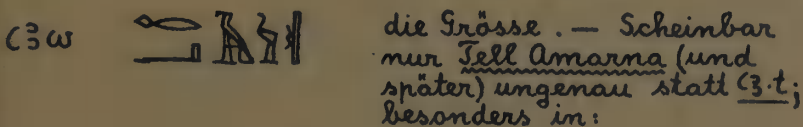 ꜥꜣw die Grösse. — Scheinbar
nur Tell Amarna (und
später) ungenau statt ꜥꜣ.t;
besonders in: